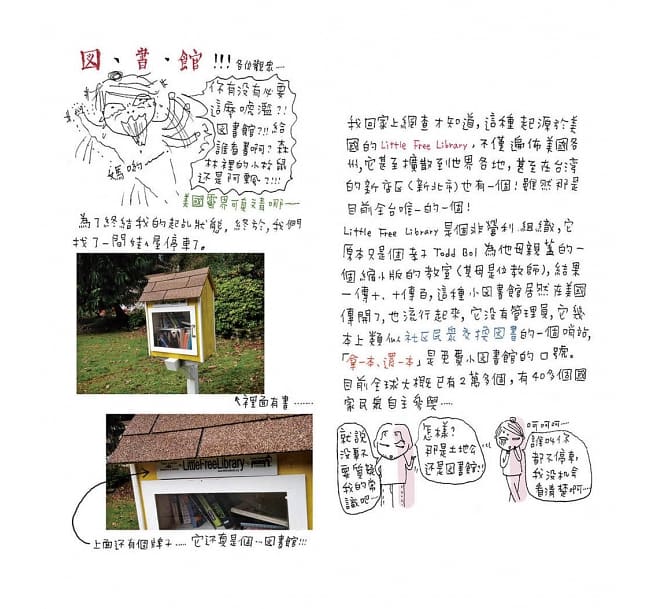 図、書、館!!!各位觀眾……
你有沒有必要
這麼唬濫?!
図書館?!!給
誰看書啊?森
林裡的小松鼠
还是阿飄?!!!
媽喲~
美國靈界可真文青哪……
為了終結我的起乩狀態,終於,我們
找了一間娃娃屋停車了。
裡面有書………
LittleFreeLibrary
上面还有個牌子……它还真是個…図書館!!!
我回家上網查才知道,這種起源於美
國的Little Free Library,不僅遍佈美國各
州,它甚至擴散到世界各地,甚至在台湾
的新店区(新北市)也有一個!雖然那是
目前全台唯一的一個!
Little Free Library是個非營利組織,它
原本只是個孝子Todd Bol為他母親蓋的一
個縮小版的教室(其母是位教師),結果
一傳十、十傳百,這種小図書館居然在美國
傳開了,也流行起來,它沒有管理員,它幾
本上類似社区民眾交換図書的一個哨站,
「拿一本、還一本」是免費小図書館的口號。
目前全球大概已有2萬多個,有40多個國
家民眾自主參與……
就說
沒事不
要質疑
我的常
識吧…
怎樣?
那是土地公
还是図書館?!
呵呵呵…
誰叫你
都不停車,
我沒机会
看清楚啊…